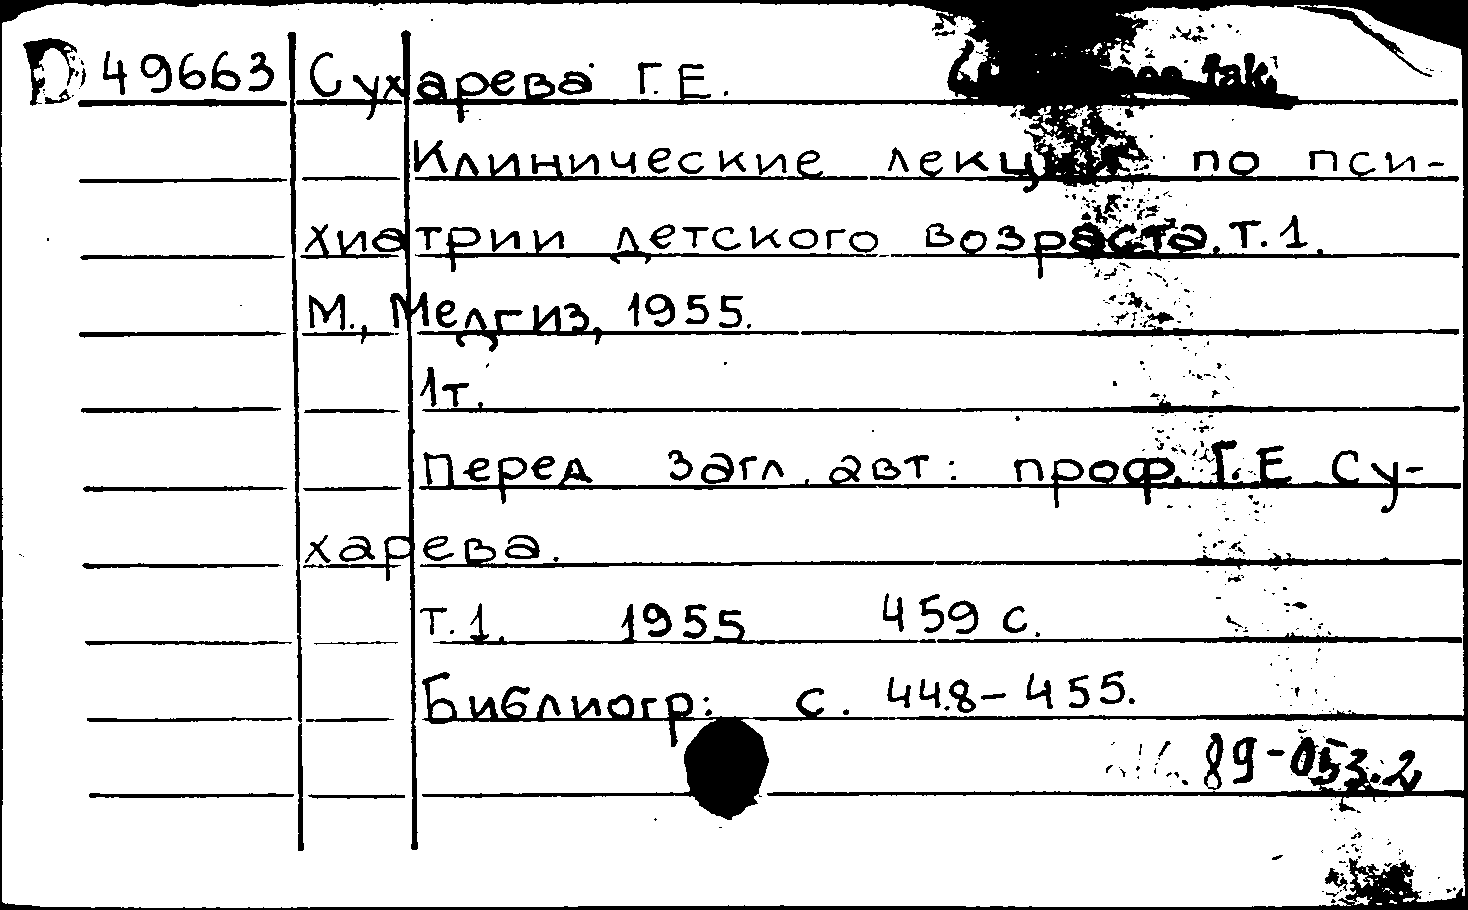 D 49663 Сухарева Г.Е.
Клинические лекции по пси-
хиатрии детского возраста. т. 1.
М., Медгиз, 1955.
1т.
Перед загл. авт: проф. Г.Е Су-
харева.
т. 1. 1955 459 с.
Библиогр: с. 448-455.
89-053.2